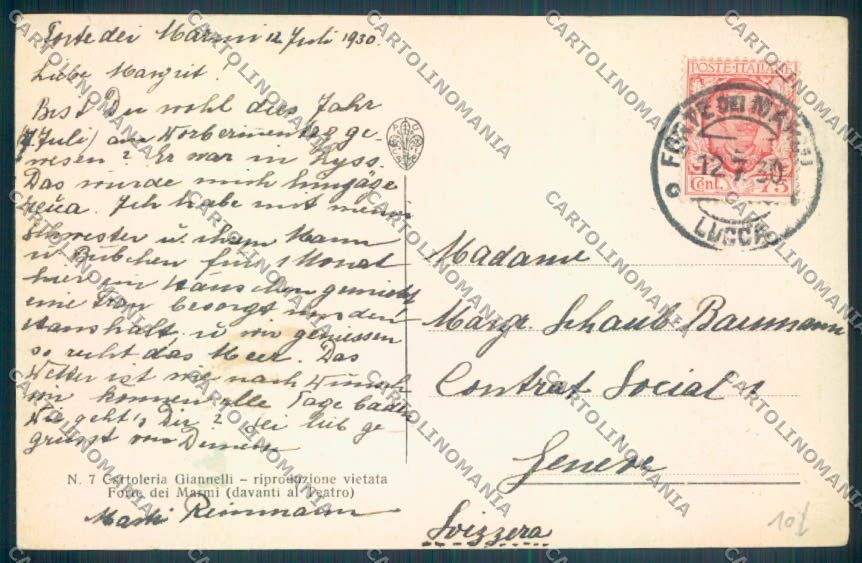 Forte dei Marmi 12 Juli 1930.
Liebe Margrit.
Bist Du wohl dies Jahr
(7 Juli) am Worbermeentag ge-
wesen? Er war in Lyss.
Das würde mich
Ich habe mit meiner
Schwester u. ihrem Mann
u. Bübchen für 1 Monat
hier ein Häuschen gemietet,
eine Frau besorgt uns den
Haushalt, u. wir geniessen
so recht das Meer. Das
Wetter ist wie nach Wunsch
wir können alle Tage baden
Wie geht's Dir? Sei lieb ge
grüsst von Deinem
N. 7 Cartoleria Giannelli – riproduzione vietata
Forte dei Marmi (davanti al Teatro)
Reinmann
POSTE·ITALIANE
Cent. 75
FORTE DEI MARMI
12.7.30
LUCCA
Madame
Marg. Schaub Baumann
Contrat Social 1
Genève
Svizzera
10
CARTOLINOMANIA